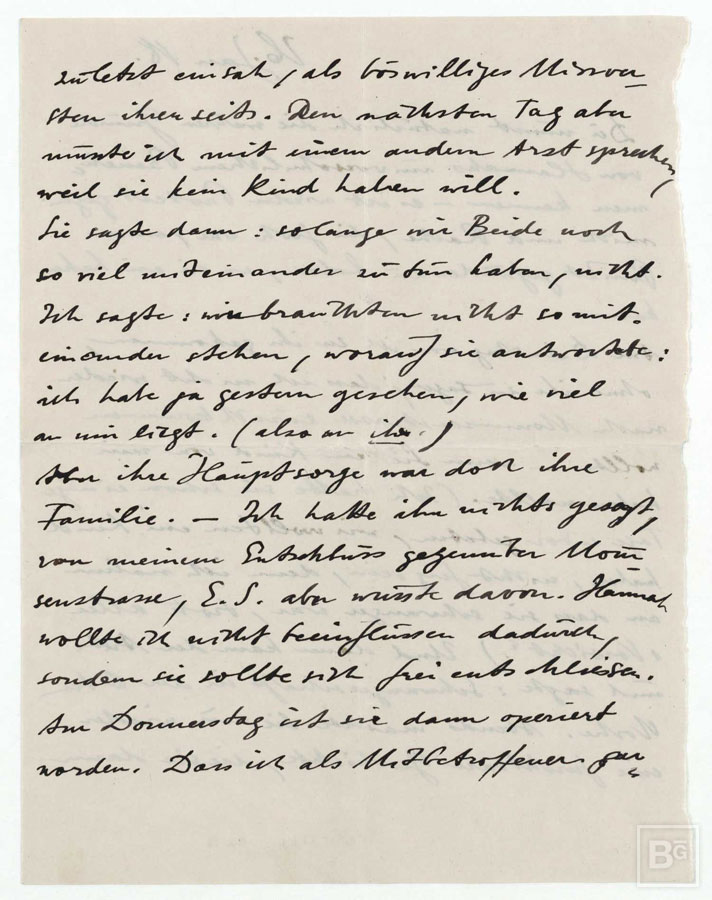 zuletzt einsah, als böswilliges Missver=
sten ihrerseits. Den nächsten Tag aber
müsste ich mit einem andern Arzt sprechen,
weil sie kein Kind haben will.
Sie sagte dann: solange wir Beide noch
so viel miteinander zu tun haben, nicht.
Ich sagte: wir brauchten nicht so mit-
einander stehen, worauf sie antwortete:
ich habe ja gestern gesehen, wie viel
an mir liegt. (also an ihr.)
Aber ihre Hauptsorge war doch ihre
Familie. — Ich hatte ihr nichts gesagt,
von meinem Entschluss gegenüber Mom̄
senstrasse, E.S. aber wusste davon. Hannah
wollte ich nicht beeinflussen dadurch,
sondern sie sollte sich frei entschliessen.
Am Donnerstag ist sie dann operiert
worden. Dass ich als Mitbetroffener gar
BG